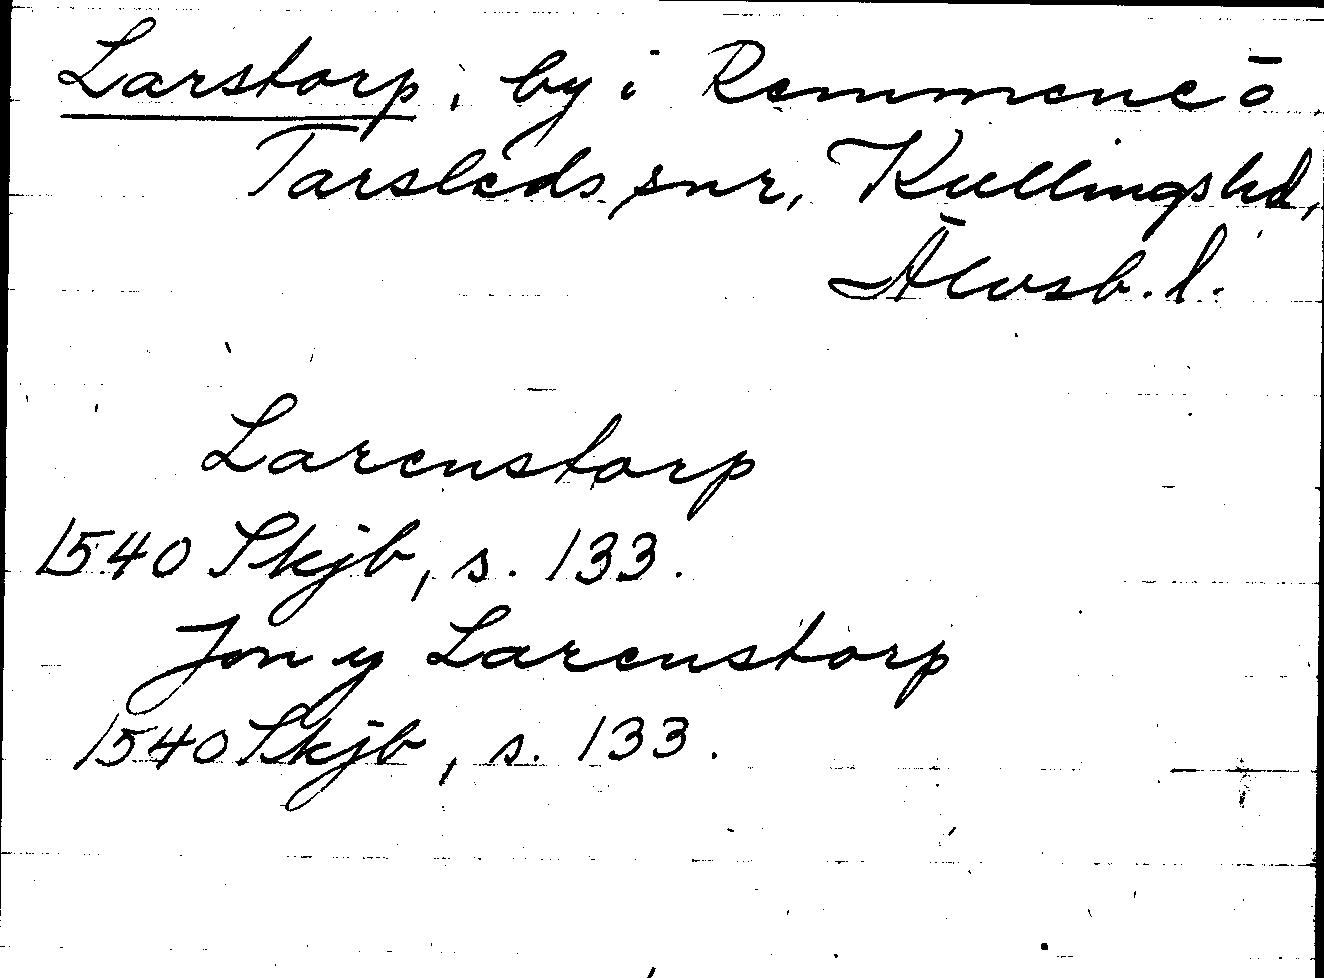 Larstorp, by i Remmene o.
Tarsleds snr, Kullings hd,
Älvsb. l.
Larenstorp
1540 Skjb, s. 133.
Jon y Larenstorp
1540 Skjb, s. 133.